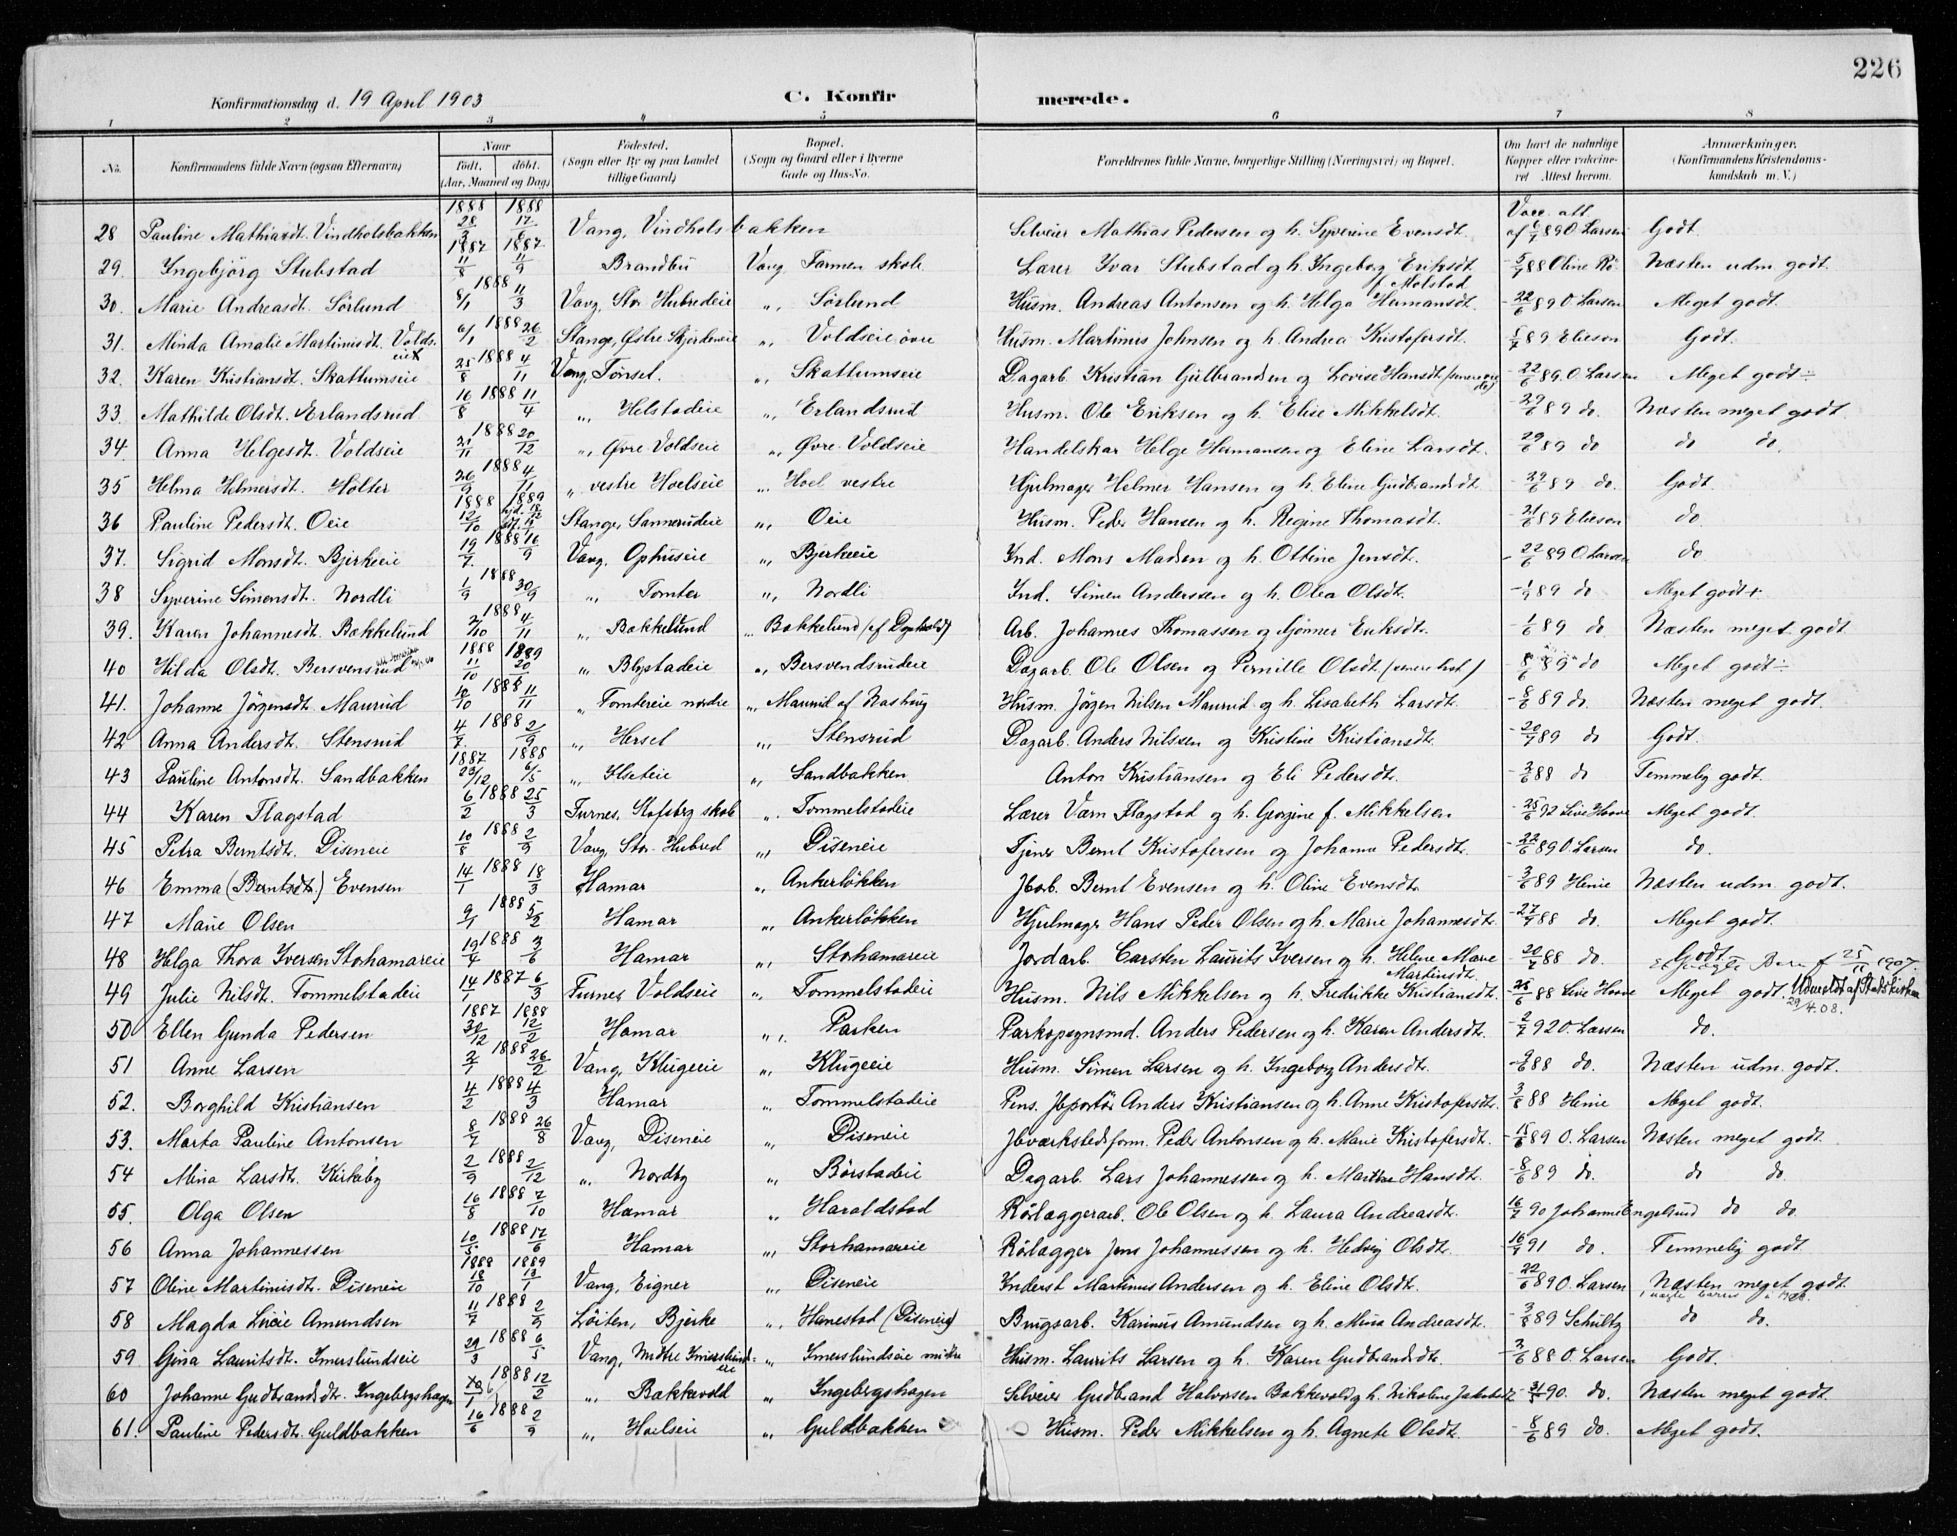 226
Konfirmationsdag d. 19 April 1903 C. Konfirmerede.
1 2 3 4 5 6 7 8
No. Konfirmandens fulde Navn (ogsaa Efternavn) Naar født. døbt. (Aar, Maaned og Dag) Fødested. (Sogn eller By og paa Landet tillige Gaard) Bopæl. (Sogn og Gaard eller i Byerne Gade og Hus-No. Forældrenes fulde Navne, borgerlige Stilling (Næringsvei) og Bopæl. Om havt de naturlige Kopper eller vaccineret Attest herom. Anmærkninger. (Konfirmandens Kristendomskundskab m. V.)
28 Pauline Mathiasdt. Vindholsbakken 1888 28/3 1888 Vang, Vindholsbakken Selveier Mathias Pedersen og h. Syverine Evensdt. Vacc. att. af 6/7 89 O. Larsen Godt.
29. Ingebjörg Stubstad 1887 11/8 1887 11/9 Brandbu Vang, Farmen skole Lærer Ivar Stubstad og h. Ingeborg Eriksdt. f. Molstad 88 Oline Rö. Næsten udm. godt.
30. Marie Andreasdt. Sörlund 8/1 1888 11/3 Vang, Stor Hubredeie „ Sörlund Husm. Andreas Antonsen og h. Helga Hermansdt. 22/6 89 O. Larsen Meget godt.
31. Minda Amalie Martinusdt. Voldseiet 6/1 1888 26/2 Stange, Østre Skjerdeneie „ Voldseie övre Husm. Martinus Johnsen og h. Andrea Kristofersdt. 89 Elieson Godt.
32. Karen Kristiansdt. Skattumseie 25/8 1888 4/11 Vang, Tönset. „ Skattumseie Dagarb. Kristian Gulbrandsen og Lovise Hansdt. 22/6 89. O. Larsen Meget godt ÷
33. Mathilde Olsdt. Erlandsrud 16/8 1888 11/4 „ Helstadeie „ Erlandsrud Husm. Ole Eriksen og h. Elise Mikkelsdt. 29/6 89 do. Næsten meget godt.
34. Anna Helgesdt. Voldseie 1888 20/12 „ Øvre Voldseie „ Øvre Voldseie Handelskar Helge Hermansen og Eline Larsdt. 29/6 89 do do do.
35 Helma Helmersdt. Holter 26/9 1888 4/11 „ vestre Hoelseie „ Hoel vestre Hjulmager Helmer Hansen og h. Eline Gudbrandsdt. 29/6 89 do. Godt.
36 Pauline Pedersdt. Oeie 1888 12/10 1889 Stange, Sannerudeie „ Oeie Husm. Peder Hansen og h. Regine Thomasdt. 21/6 89 Elieson do.
37. Sigrid Monsdt. Bjerkeeie 19/7 1888 16/9 Vang, Ophuseie „ Bjerkeeie Ind. Mons Madsen og h. Ottine Jensdt. 22/6 89 O. Larsen do
38 Syverine Simensdt. Nordli 1/9 1888 30/9 „ Tomter „ Nordli Ind. Simen Andersen og h. Olea Olsdt. 89 do Meget godt +
39. Karen Johannesdt. Bækkelund 2/10 1888 4/11 „ Bækkelund „ Bækkelund Arb. Johannes Thomassen og Gjönner Eriksdt. 1/6 89 do Næsten meget godt
40 Hilda Olsdt. Bersvensrud 1888 11/10 1889 20/1 „ Blystadeie „ Bersvendsrudeie Dagarb. Ole Olsen og Pernille Olsdt. 8/6 89 do Meget godt ÷
41. Johanne Jörgensdt. Maurud 10/10 1888 11/11 „ Tomtereie nordre „ Maurud af Nashug Husm. Jörgen Nilsen Maurud og h. Lisabeth Larsdt. 8/6 89 do. Næsten meget godt.
42 Anna Andersdt. Stensrud 4/7 1888 2/9 „ Herset „ Stensrud Dagarb. Anders Nilsen og Kristine Kristiansdt. 20/7 89 do Godt.
43 Pauline Antonsdt. Sandbakken 1887 23/12 1888 6/5 „ Ilseteie „ Sandbakken Anton Kristiansen og Eli Pedersdt. 3/6 88 do Temmelig godt.
44 Karen Flagstad 6/2 1888 25/3 Furnes, Stafsberg skole „ Tommelstadeie Lærer Værn Flagstad og h. Georgine f. Mikkelsen 25/6 92 Live Hoove Meget godt.
45 Petra Berntsdt. Diseneie 10/8 1888 2/9 Vang, Stor-Hubred „ Diseneie Tjener Bernt Kristofersen og Johanne Pedersdt. 22/6 89 O. Larsen do.
46 Emma (Berntsdt.) Evensen 14/1 1888 18/3 Hamar „ Ankerlökken Jbarb. Bernt Evensen og h. Oline Evensdt. 3/6 89 Heine Næsten udm. godt.
47 Marie Olsen 9/1 1888 Hamar „ Ankerlökken Hjulmager Hans Peder Olsen og h. Marie Johannesdt. 27/9 88 do. Meget godt.
48 Helga Thora Iversen Storhamareie 19/4 1888 3/6 Hamar „ Storhamareie Jordarb. Carsten Laurits Iversen og h. Helene Marie Martinsdt. 20/7 88 do. Godt. 25/11 1907.
49 Julie Nilsdt. Tommelstadeie 14/1 1887 6/3 Furnes Voldseie „ Tommelstadeie Husm. Nils Mikkelsen og h. Fredrikke Kristiansdt. 88 Live Hoove Meget godt. Udmeldt af Statskirken 29/4.08.
50 Ellen Gunda Pedersen 1887 30/12 1888 12/2 Hamar „ Parken Parkopsynsmd. Anders Pedersen og h. Karen Andersdt. 2/7 92 O. Larsen do.
51 Anne Larsen 2/1 1888 26/2 Vang, Klugeeie „ Klugeeie Husm. Simen Larsen og h. Ingeborg Andersdt. 88 do. Næsten udm. godt.
52. Borghild Kristiansen 4/2 1888 4/3 Hamar „ Tommelstadeie Pens. Jbportör Anders Kristiansen og h. Anne Kristofersdt. 3/8 88 Heine Meget godt.
53. Marta Pauline Antonsen 8/7 1888 26/8 Vang, Diseneie „ Diseneie Jbværkstedsform. Peder Antonsen og h. Marie Kristofersdt. 15/6 89 O. Larsen Næsten meget godt.
54 Mina Larsdt. Kirkeby 2/9 1888 2/12 „ Nordby „ Börstadeie Dagarb. Lars Johannessen og h. Marthe Hansdt. 8/6 89 do. do do.
55. Olga Olsen 16/8 1888 7/10 Hamar „ Haraldstad Rörlæggerarb. Ole Olsen og h. Laura Andreasdt. 16/7 90 Johanne Engelsund do do.
56 Anna Johannessen 10/5 1888 17/6 Hamar „ Storhamareie Rörlægger Jens Johannessen og h. Hedvig Olsdt. 91 do. Temmelig godt.
57 Oline Martinusdt. Diseneie 1888 18/10 1889 13/1 Vang, Eigner „ Diseneie Inderst Martinus Andersen og h. Eline Olsdt. 22/6 89 O. Larsen Næsten meget godt
58 Magda Lucie Amundsen 11/7 1888 2/9 Löiten, Bjerke „ Hanestad (Diseneie) Brugsarb. Karinus Amundsen og h. Mina Andreasdt. 3/8 89 Schultz do do.
59 Gina Lauritsdt. Imerslundseie 29/3 1888 6/5 Vang, Midtre Imerslundseie „ Imerslundseie midtre Husm. Laurits Larsen og h. Karen Gudbrandsdt. 88 O. Larsen Godt.
60 Johanne Gudbrandsdt. Ingebergshagen 1888 12/2 „ Bakkevold „ Ingebergshagen Selveier Gudbrand Halvorsen Bakkevold og h. Nikoline Jakobsdt. 90. do. Næsten meget godt.
61. Pauline Pedersdt. Guldbakken 16/6 1888 2/9 „ Hoelseie „ Guldbakken Husm. Peder Mikkelsen og h. Agnete Olsdt. 8/6 89 do. Meget godt.